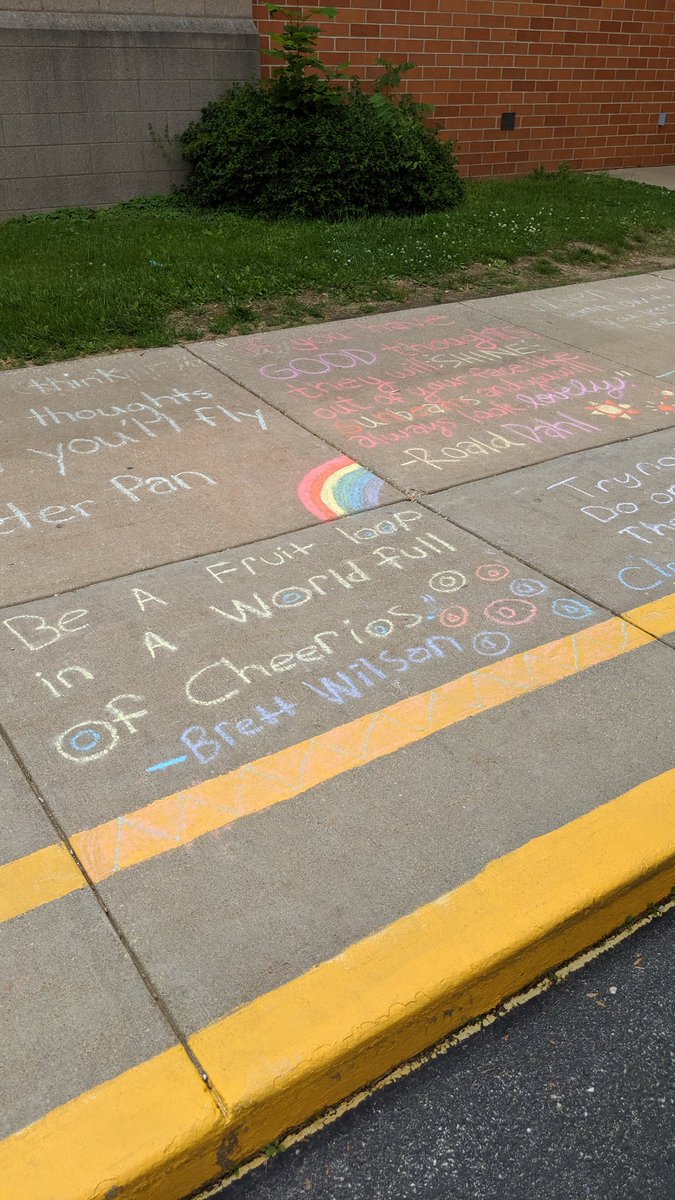 think
thoughts
you'll fly
Peter Pan
if you have
GOOD thoughts
they will SHINE
out of your face like
sunbeams and you will
always look lovely."
-Roald Dahl
Trying
Do
The
Be A Fruit loop
in A World full
of Cheerios
-Brett Wilson